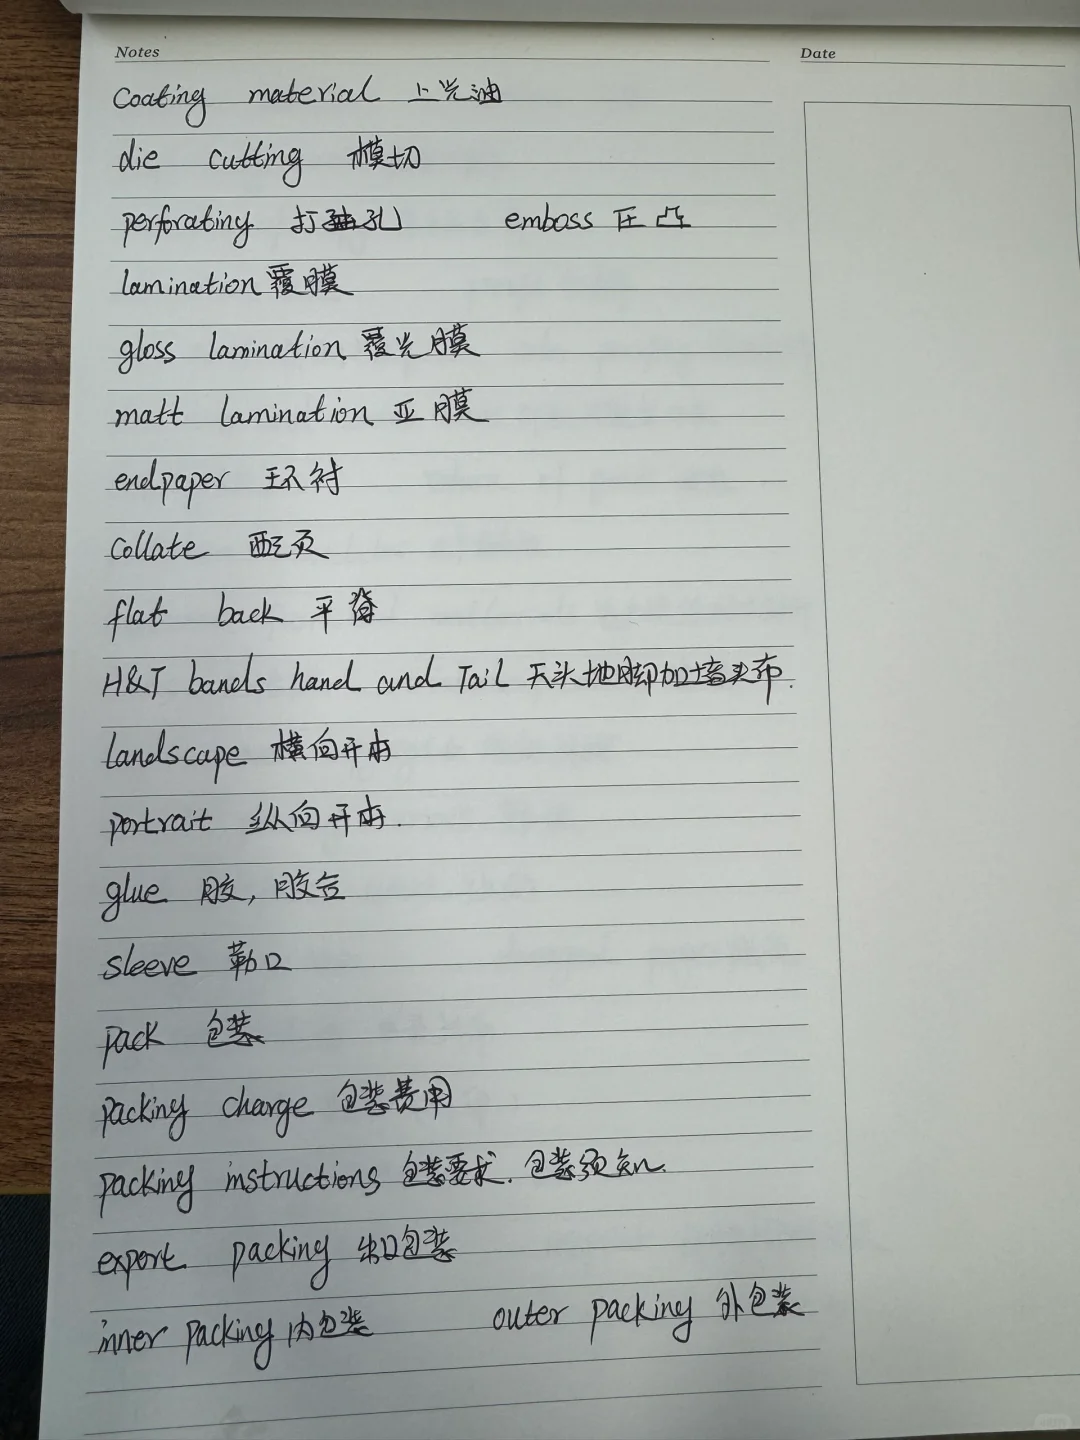 Notes
Date
Coating material 上光油
die cutting 模切
perforating 打孔 emboss 压凸
lamination 覆膜
gloss lamination 覆光膜
matt lamination 亚膜
endpaper 环衬
Collate 配页
flat back 平脊
H&T bands hand and Tail 天头地脚加堵头布.
landscape 横向开本
portrait 纵向开本.
glue 胶, 胶合
sleeve 勒口
pack 包装
packing charge 包装费用
packing instructions 包装要求. 包装须知.
export packing 出口包装
inner packing 内包装 outer packing 外包装